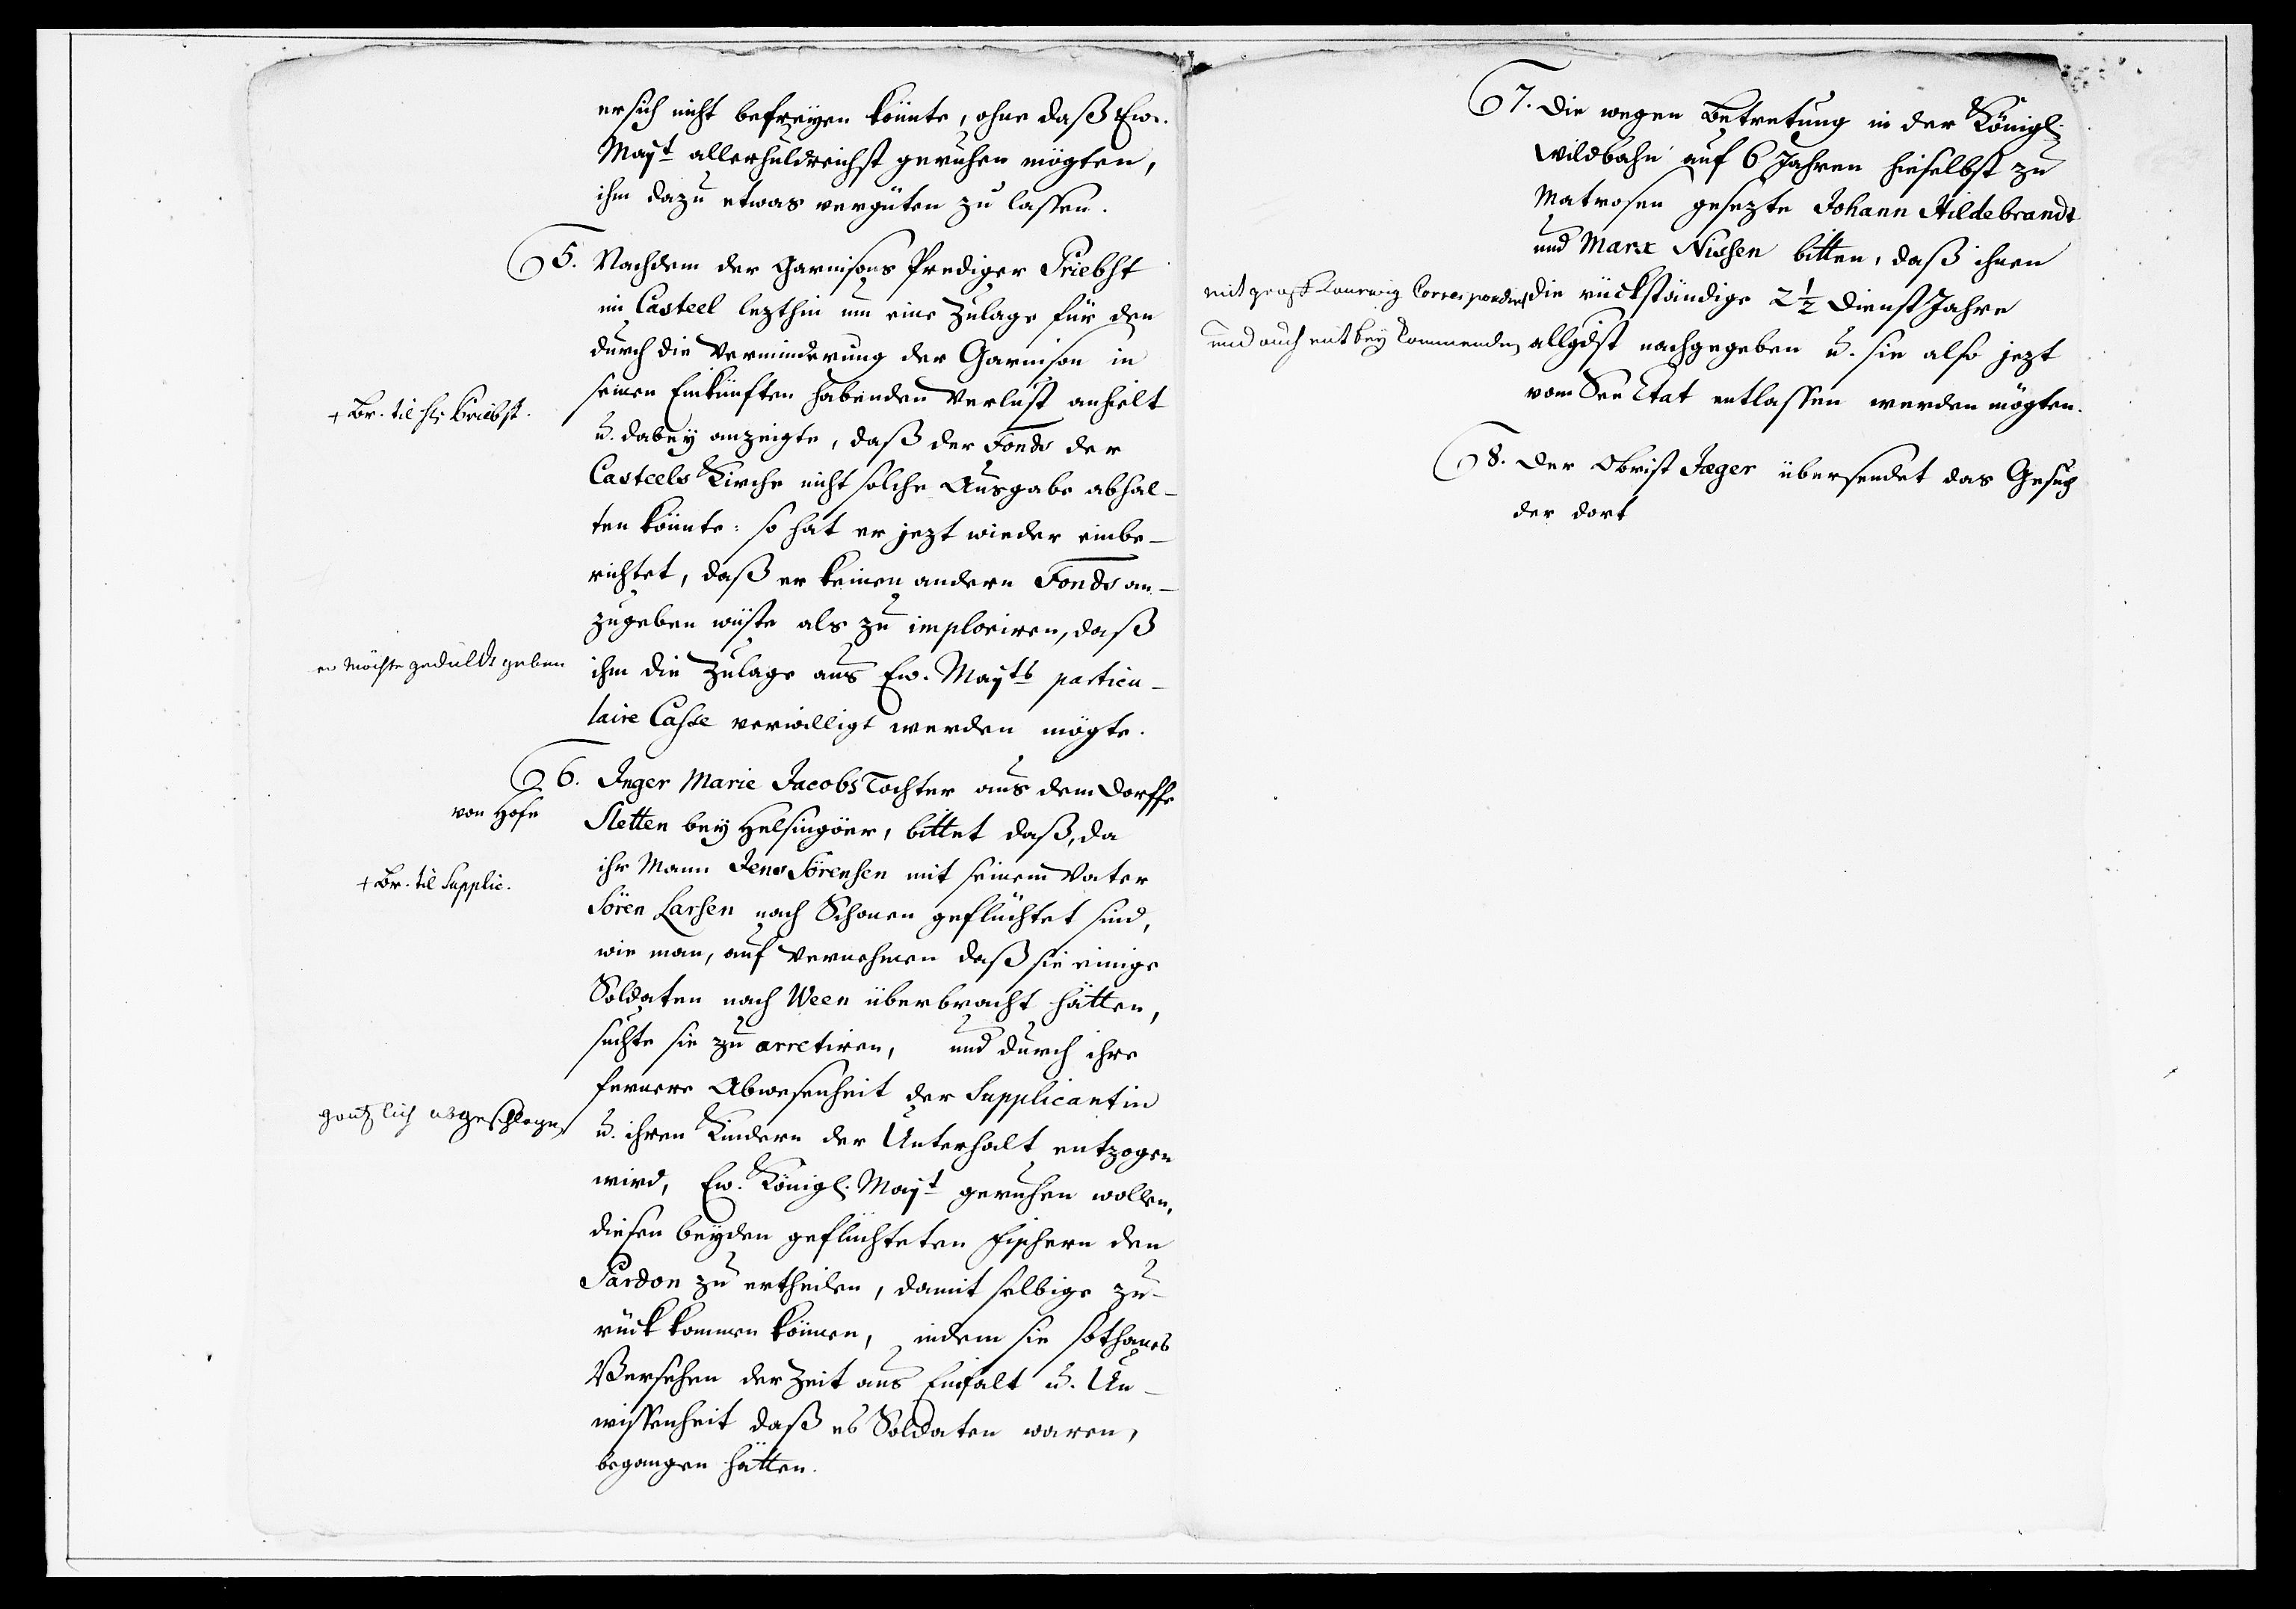 er sich nicht befreyen könnte, ohne daß Ew.
Mayt allerhuldreichst geruhen mögten,
ihm dazu etwas vergüten zu lassen.
5. Nachdem der Garnisons Prediger Priebst
im Casteel lezthin um eine Zulage für den
durch die Verminderung der Garnison in
seinen Einkünften habenden Verlust anhielt
+ Br. til Hr Priebst.
u. dabey anzeigte, daß der Fonds der
Casteels Kirche nicht solche Ausgabe abhal-
ten könnte: so hat er jezt wieder einbe-
richtet, daß er keinen andern Fonds an-
zugeben wüste als zu imploriren, daß
er möchte gedults geben
ihm die Zulage aus Ew. Mayts particu-
laire Casse verwilligt werden mögte.
6. Inger Marie Jacobs Tochter aus dem Dorffe
von Hofe
Sletten bey Helsingöer, bittet daß, da
ihr Mann Jens Sörensen mit seinem Vater
+ Br. til Supplic.
Sören Larsen nach Schonen geflüchtet sind,
wie man, auf Vernehmen daß sie einige
Soldaten nach Ween überbracht hätten,
suchte sie zu arretiren, und durch ihre
fernere Abwesenheit der Supplicantin
gantzlich abgeschlagen
u. ihren Kindern der Unterhalt entzogen
wird, Ew. Königl. Mayt geruhen wollen,
diesen beyden geflüchteten Fischern den
Pardon zu ertheilen, damit selbige zu-
rück kommen können, indem sie sothanes
Versehen der Zeit aus Einfalt u. Un-
wissenheit daß es Soldaten waren,
begangen hätten.
7. Die wegen Betretung in der Königl.
Wildbahn auf 6 Jahren hieselbst zu
Matrosen gesezte Johann Hildebrandt
und Marx Nissen bitten, daß ihnen
mit graff Correspondirt
die rückständige 2 1/2 Dienst Jahre
und auch mit bey kommenden
allgdst nachgegeben u. sie also jezt
vom See Etat entlassen werden mögten.
8. Der Obrist Jæger übersendet das Gesuch
der dort